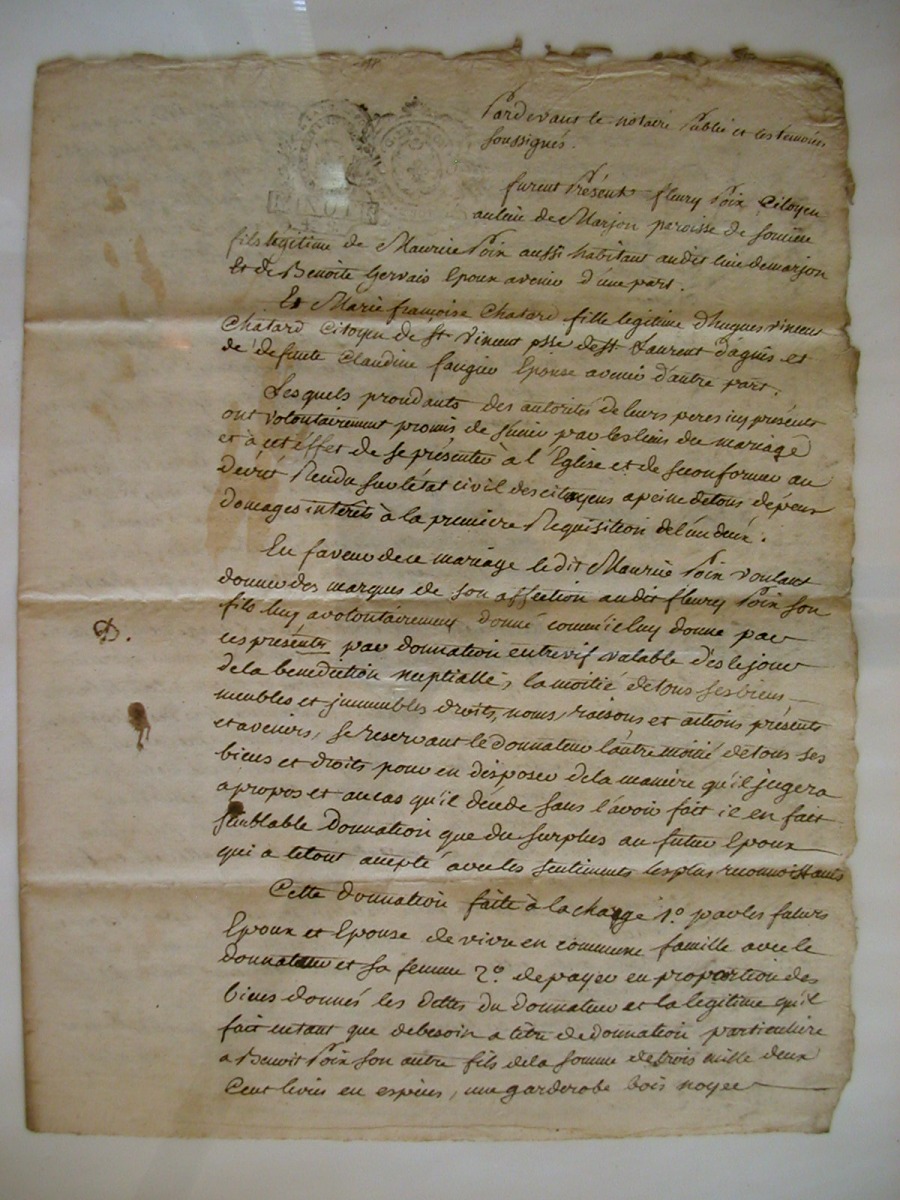 Pardevant le notaire Public et les temoins
soussignés.
furent Présents fleury Poix Citoyen
au lieu de Marjon paroisse de
fils légitime de Maurice Poix aussi habitant audit lieu de marjon
Et de Benoite Gervais Epoux avenir d'une part.
Et Marie françoise Chatard fille legitime d'hugues vincent
Chatard Citoyen de St Vincent psse de St Laurent d'agnis et
de defunte Claudine Epouse avenir d'autre part.
Lesquels des autorités de leurs peres icy présents
ont volontairement promis de s'unir par les liens du mariage
et à cet éffet de se présenter à l'Eglise et de se conformer au
décrét Rendu sur l'état civil des citoyens a peine de tous dépens
domages interêts à la premiere Requisition de l'un deux.
En faveur de ce mariage ledit Maurice Poix voulant
donner des marques de son affection audit fleury Poix son
fils luy a volontairement donné comm'il luy donne par
ces présentes par donnation entrevif valable dès le jour
de la benediction neptialle, la moitié de tous ses biens
meubles et jmmeubles droits, noms, raisons et actions présents
et avenirs, se reservant le donnateur l'autre moitié de tous ses
biens et droits pour en disposer de la maniere qu'il jugera
à propos et au cas qu'il décéde sans l'avoir fait il en fait
semblable donnation que du surplus au futur Epoux
qui a le tout accepté avec les sentiments les plus reconnoissants
Cette donnation faite à la charge 1.° par les futurs
Epoux et Epouse de vivre en commune famille avec le
donnateur et sa femme 2.° de payer en proportion des
biens donnés les dettes du donnateur et la legitime qu'il
fait en tant que de besoin a titre de donnation particuliere
a Benoit Poix son autre fils de la somme de trois mille deux
Cent livres en espèces, une garderobe bois noyer